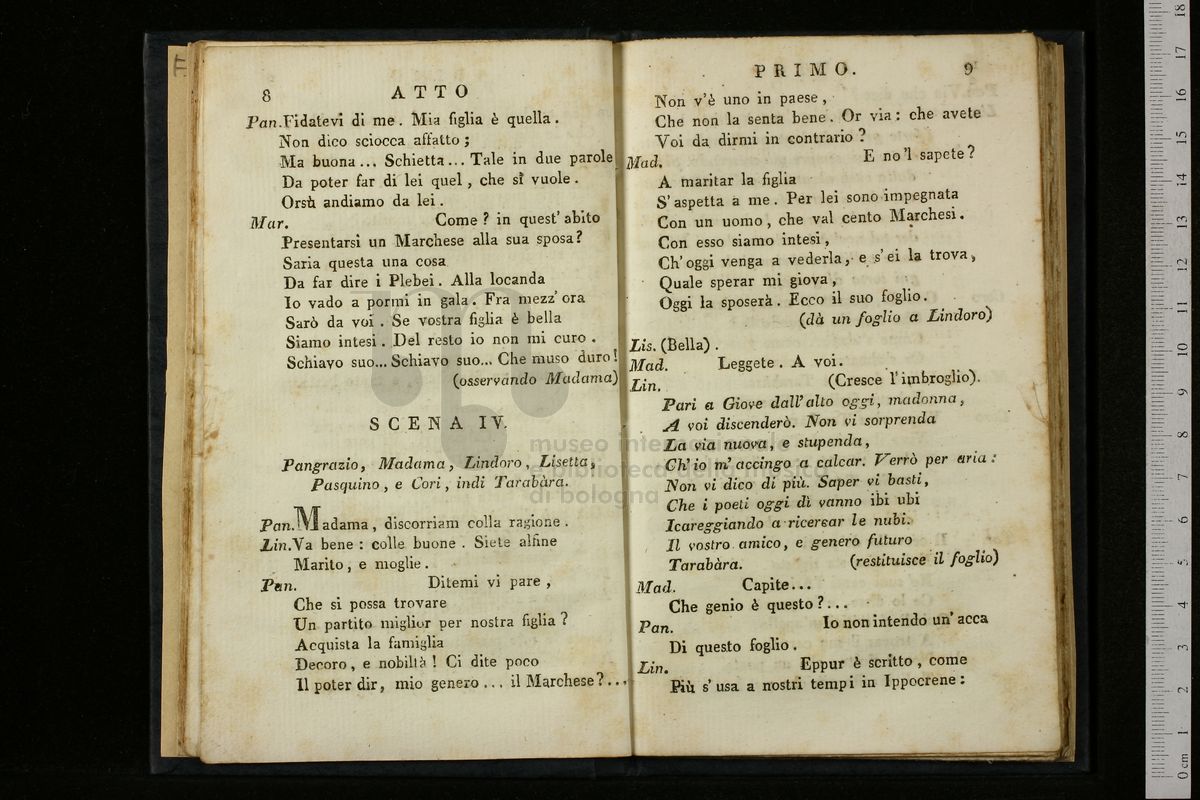 8 ATTO
Pan. Fidatevi di me. Mia figlia è quella.
Non dico sciocca affatto;
Ma buona... Schietta... Tale in due parole
Da poter far di lei quel, che si vuole.
Orsù andiamo da lei.
Mar. Come? in quest' abito
Presentarsi un Marchese alla sua sposa?
Saria questa una cosa
Da far dire i Plebei. Alla locanda
Io vado a pormi in gala. Fra mezz' ora
Sarò da voi. Se vostra figlia è bella
Siamo intesi. Del resto io non mi curo.
Schiavo suo... Schiavo suo... Che muso duro!
(osservando Madama)
SCENA IV.
Pangrazio, Madama, Lindoro, Lisetta,
Pasquino, e Cori, indi Tarabàra.
Pan. Madama, discorriam colla ragione.
Lin. Va bene: colle buone. Siete alfine
Marito, e moglie.
Pan. Ditemi vi pare,
Che si possa trovare
Un partito miglior per nostra figlia?
Acquista la famiglia
Decoro, e nobiltà! Ci dite poco
Il poter dir, mio genero... il Marchese?...
PRIMO. 9
Non v'è uno in paese,
Che non la senta bene. Or via: che avete
Voi da dirmi in contrario?
Mad. E no'l sapete?
A maritar la figlia
S'aspetta a me. Per lei sono impegnata
Con un uomo, che val cento Marchesi.
Con esso siamo intesi,
Ch'oggi venga a vederla, e s'ei la trova,
Quale sperar mi giova,
Oggi la sposerà. Ecco il suo foglio.
(dà un foglio a Lindoro)
Lis. (Bella).
Mad. Leggete. A voi.
Lin. (Cresce l'imbroglio).
Pari a Giove dall'alto oggi, madonna,
A voi discenderò. Non vi sorprenda
La via nuova, e stupenda,
Ch'io m'accingo a calcar. Verrò per aria:
Non vi dico di più. Saper vi basti,
Che i poeti oggi dì vanno ibi ubi
Icareggiando a ricercar le nubi.
Il vostro amico, e genero futuro
Tarabàra. (restituisce il foglio)
Mad. Capite...
Che genio è questo?...
Pan. Io non intendo un' acca
Di questo foglio.
Lin. Eppur è scritto, come
Più s'usa a nostri tempi in Ippocrene:
museo internazionale
e biblioteca della musica
di bologna
0 cm 1 2 3 4 5 6 7 8 9 10 11 12 13 14 15 16 17 18